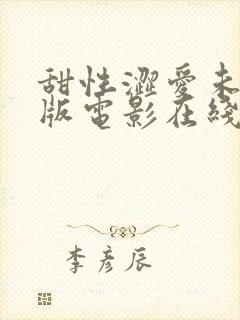 甜性澀愛未
版電影在綫
李彦辰